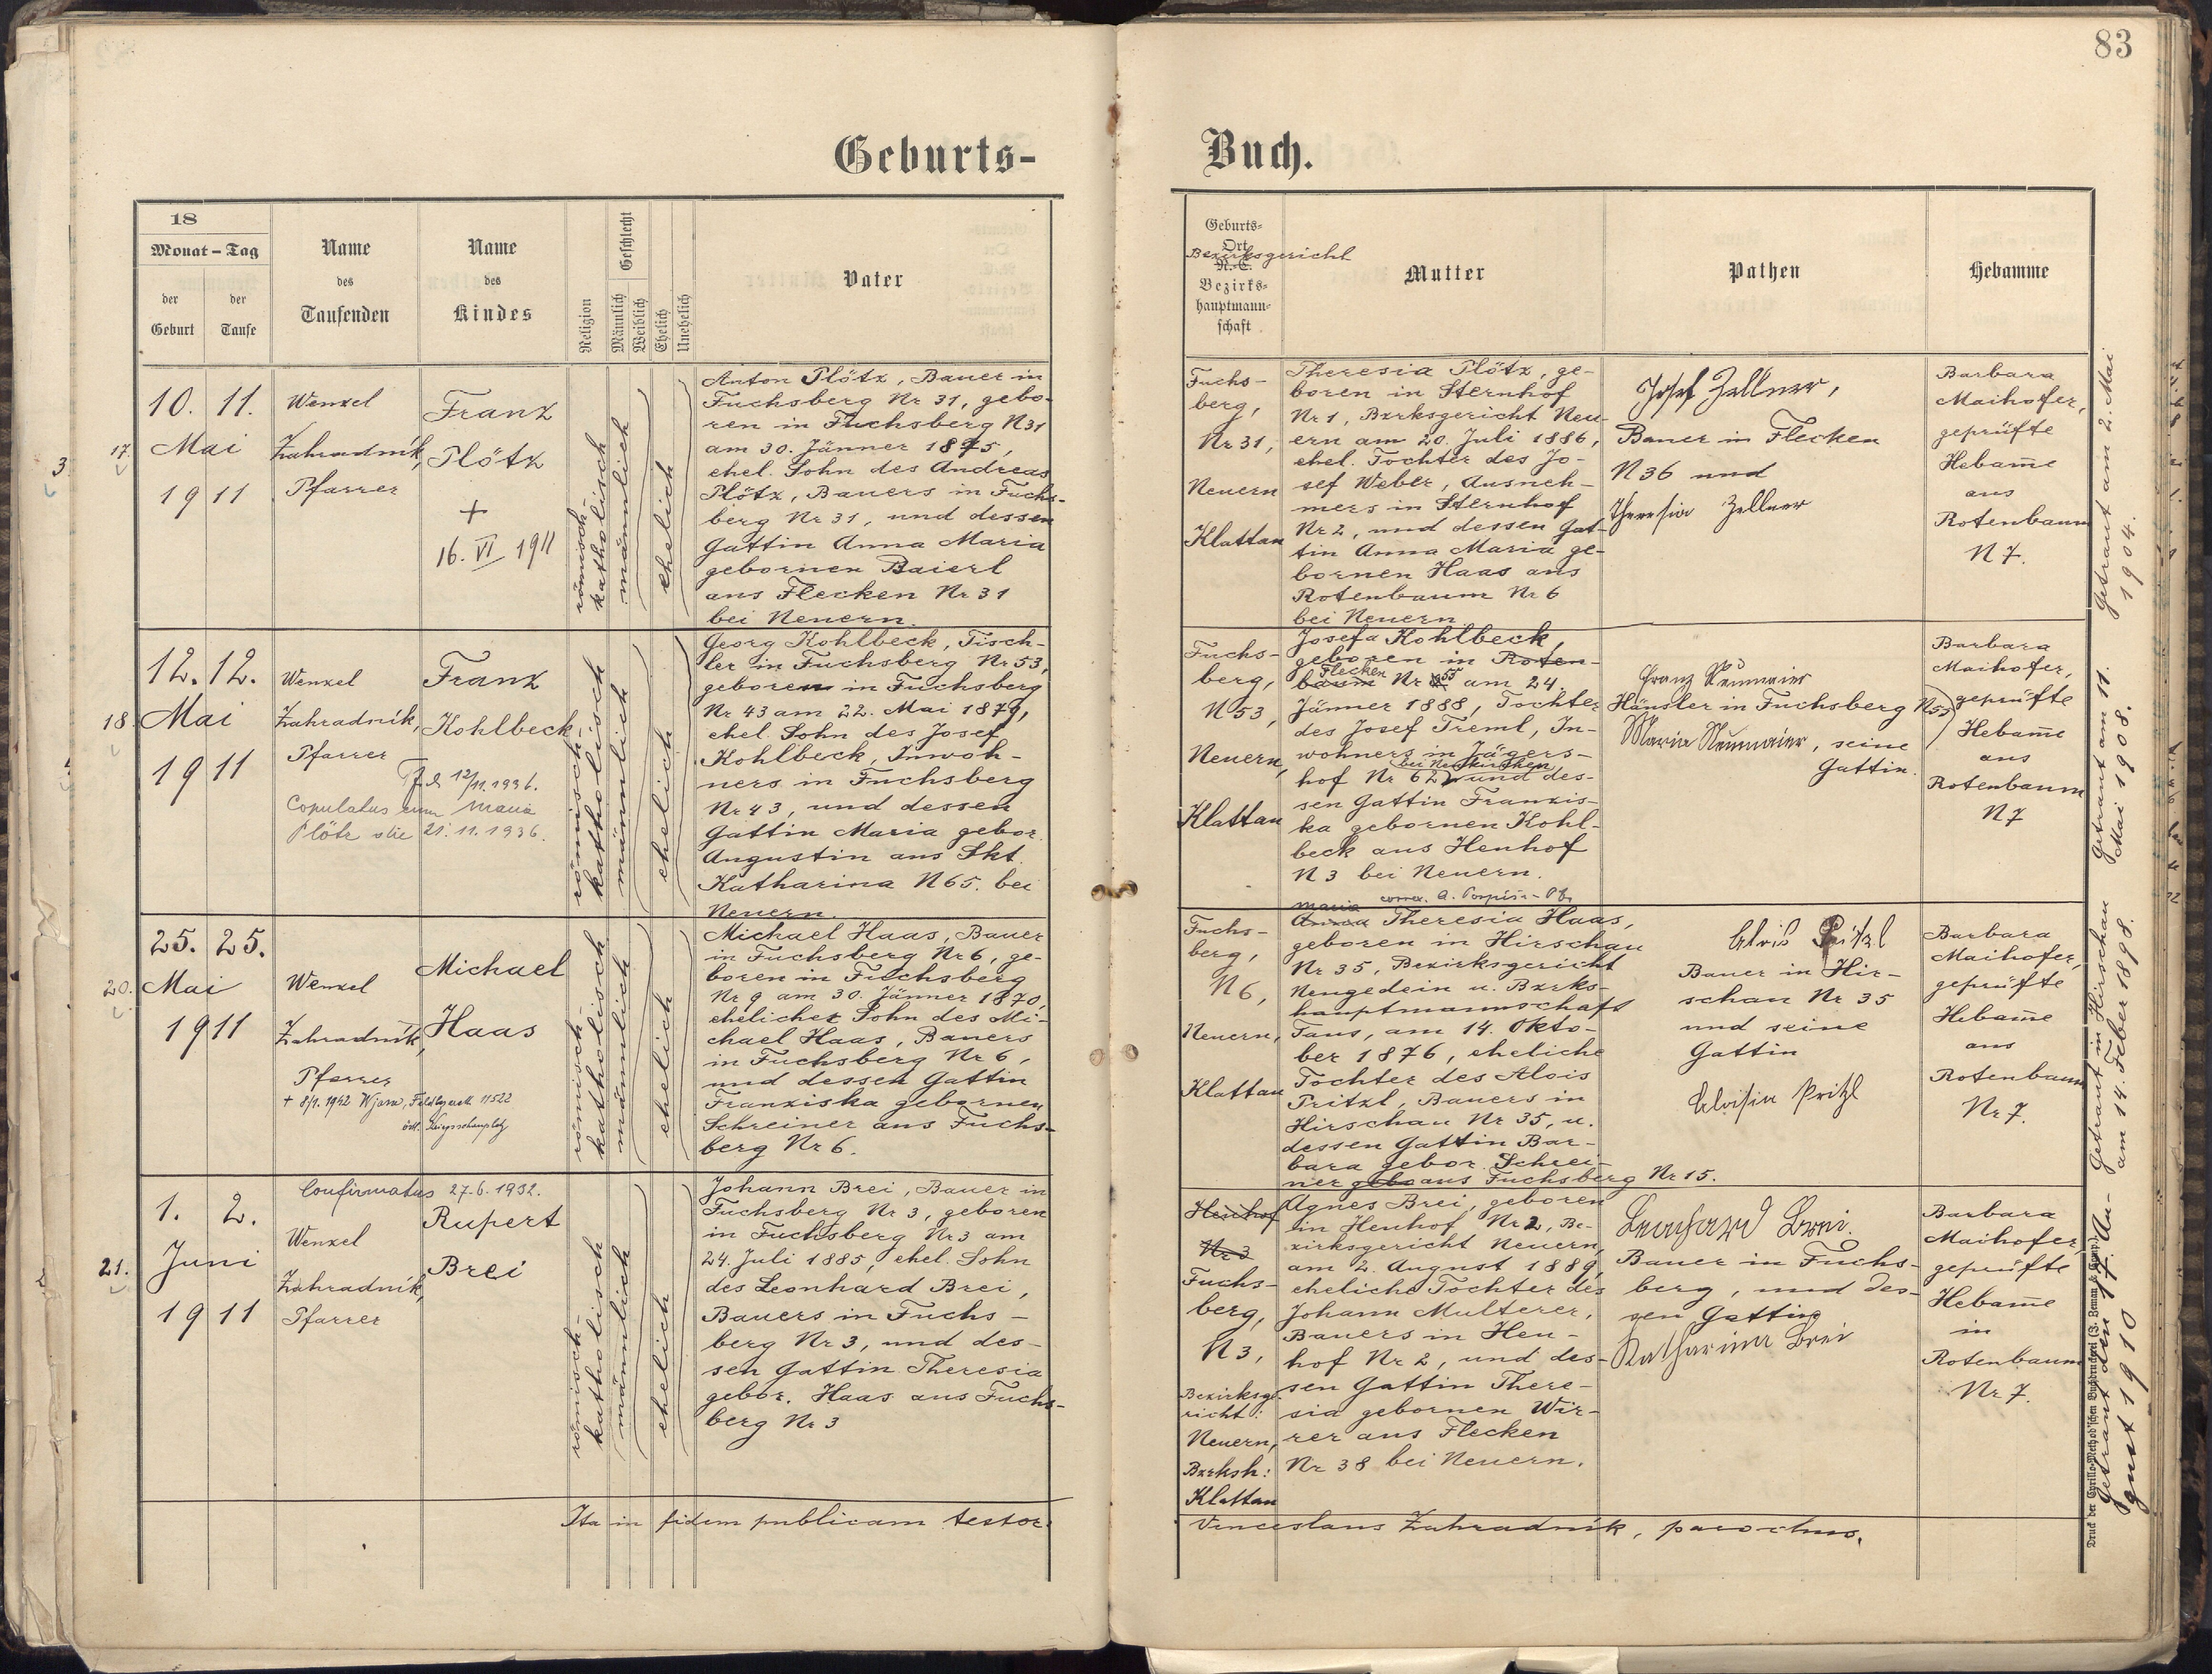 83
Geburts-
Buch.
18
Monat – Tag
der Geburt
der Taufe
Name
des
Taufenden
Name
des
Kindes
Religion
Geschlecht
Männlich
Weiblich
Ehelich
Unehelich
Vater
Geburts-
Ort
Bezirksgericht
N.-C.
Bezirks-
hauptmann-
schaft
Mutter
Pathen
Hebamme
3.
17.
10. 11.
Mai
1911
Wenzel
Zahradník,
Pfarrer
Franz
Plötz
+
16. VI 1911
römisch-
katholisch
männlich
ehelich
Anton Plötz, Bauer in
Fuchsberg Nr 31, gebo-
ren in Fuchsberg N 31
am 30. Jänner 1875,
ehel. Sohn des Andreas
Plötz, Bauers in Fuchs-
berg Nr 31, und dessen
Gattin Anna Maria
gebornen Baierl
aus Flecken Nr 31
bei Neuern.
Fuchs-
berg,
Nr 31,
Neuern
Klattau
Theresia Plötz, ge-
boren in Sternhof
Nr 1, Bzrksgericht Neu-
ern am 20. Juli 1886,
ehel. Tochter des Jo-
sef Weber, Ausneh-
mers in Sternhof
Nr 2, und dessen Gat-
tin Anna Maria ge-
bornen Haas aus
Rotenbaum Nr 6
bei Neuern
Josef Zellner,
Bauer in Flecken
N 36 und
Theresia Zellner
Barbara
Maihofer,
geprüfte
Hebam̄e
aus
Rotenbaum
N 7.
Getraut am 2. Mai
1904.
18.
12. 12.
Mai
1911
Wenzel
Zahradník,
Pfarrer
12/11. 1936.
Copulatus cum Maria
Plötz die 21. 11. 1936.
Franz
Kohlbeck
römisch-
katholisch
männlich
ehelich
Georg Kohlbeck, Tisch-
ler in Fuchsberg Nr 53,
geboren in Fuchsberg
Nr 43 am 22. Mai 1879,
ehel. Sohn des Josef
Kohlbeck, Inwoh-
ners in Fuchsberg
Nr 43, und dessen
Gattin Maria gebor.
Augustin aus Skt.
Katharina N 65. bei
Neuern.
Fuchs-
berg,
N 53,
Neuern,
Klattau
Josefa Kohlbeck,
geboren in Roten-
Flecken 55
baum Nr am 24.
Jänner 1888, Tochter
des Josef Treml, In-
wohners in Jägers-
bei Neukirchen
hof Nr 62, und des-
sen Gattin Franzis-
ka gebornen Kohl-
beck aus Heuhof
N 3 bei Neuern.
Franz Neumaier
Häusler in Fuchsberg N 55
Maria Neumaier, seine
Gattin.
Barbara
Maihofer,
geprüfte
Hebam̄e
aus
Rotenbaum
N 7
Getraut am 11.
Mai 1908.
20.
25. 25.
Mai
1911
Wenzel
Zahradník,
Pfarrer
+ 8/1. 1942 Wjasma, 11522
östl. Kriegsschauplatz
Michael
Haas
römisch-
katholisch
männlich
ehelich
Michael Haas, Bauer
in Fuchsberg Nr 6, ge-
boren in Fuchsberg
Nr 9 am 30. Jänner 1870,
ehelicher Sohn des Mi-
chael Haas, Bauers
in Fuchsberg Nr 6,
und dessen Gattin
Franziska gebornen
Schreiner aus Fuchs-
berg Nr 6.
Fuchs-
berg,
N 6,
Neuern,
Klattau
Maria
Anna Theresia Haas,
geboren in Hirschau
Nr 35, Bezirksgericht
Neugedein u. Bzrks-
hauptmannschaft
Taus, am 14. Okto-
ber 1876, eheliche
Tochter des Alois
Pritzl, Bauers in
Hirschau Nr 35, u.
dessen Gattin Bar-
bara gebor. Schrei-
ner gebo aus Fuchsberg Nr 15.
Alois Pritzl
Bauer in Hir-
schau Nr 35
und seine
Gattin
Aloisia Pritzl
Barbara
Maihofer,
geprüfte
Hebam̄e
aus
Rotenbaum
Nr 7.
Getraut in Hirschau
am 14. Feber 1898.
21.
1. 2.
Juni
1911
Confirmatus 27. 6. 1932.
Wenzel
Zahradník,
Pfarrer
Rupert
Brei
römisch-
katholisch
männlich
ehelich
Johann Brei, Bauer in
Fuchsberg Nr 3, geboren
in Fuchsberg Nr 3 am
24. Juli 1885, ehel. Sohn
des Leonhard Brei,
Bauers in Fuchs-
berg Nr 3, und des-
sen Gattin Theresia
gebor. Haas aus Fuchs-
berg Nr 3
Heuhof
Nr 3
Fuchs-
berg,
N 3,
Bezirksge-
richt:
Neuern,
Bzrksh:
Klattau
Agnes Brei, geboren
in Heuhof Nr 2, Be-
zirksgericht Neuern,
am 2. August 1889,
eheliche Tochter des
Johann Multerer,
Bauers in Heu-
hof Nr 2, und des-
sen Gattin There-
sia gebornen Wir-
rer aus Flecken
Nr 38 bei Neuern.
Leonhard Brei.
Bauer in Fuchs-
berg, und des-
sen Gattin
Katharina Brei
Barbara
Maihofer,
geprüfte
Hebam̄e
in
Rotenbaum
Nr 7.
Getraut den 17. Au-
gust 1910
Ita in fidem publicam testor.
Venceslaus Zahradník, parochus.
Druck der Cyrillo-Method'schen Buchdruckerei (J. Zeman & Comp.)